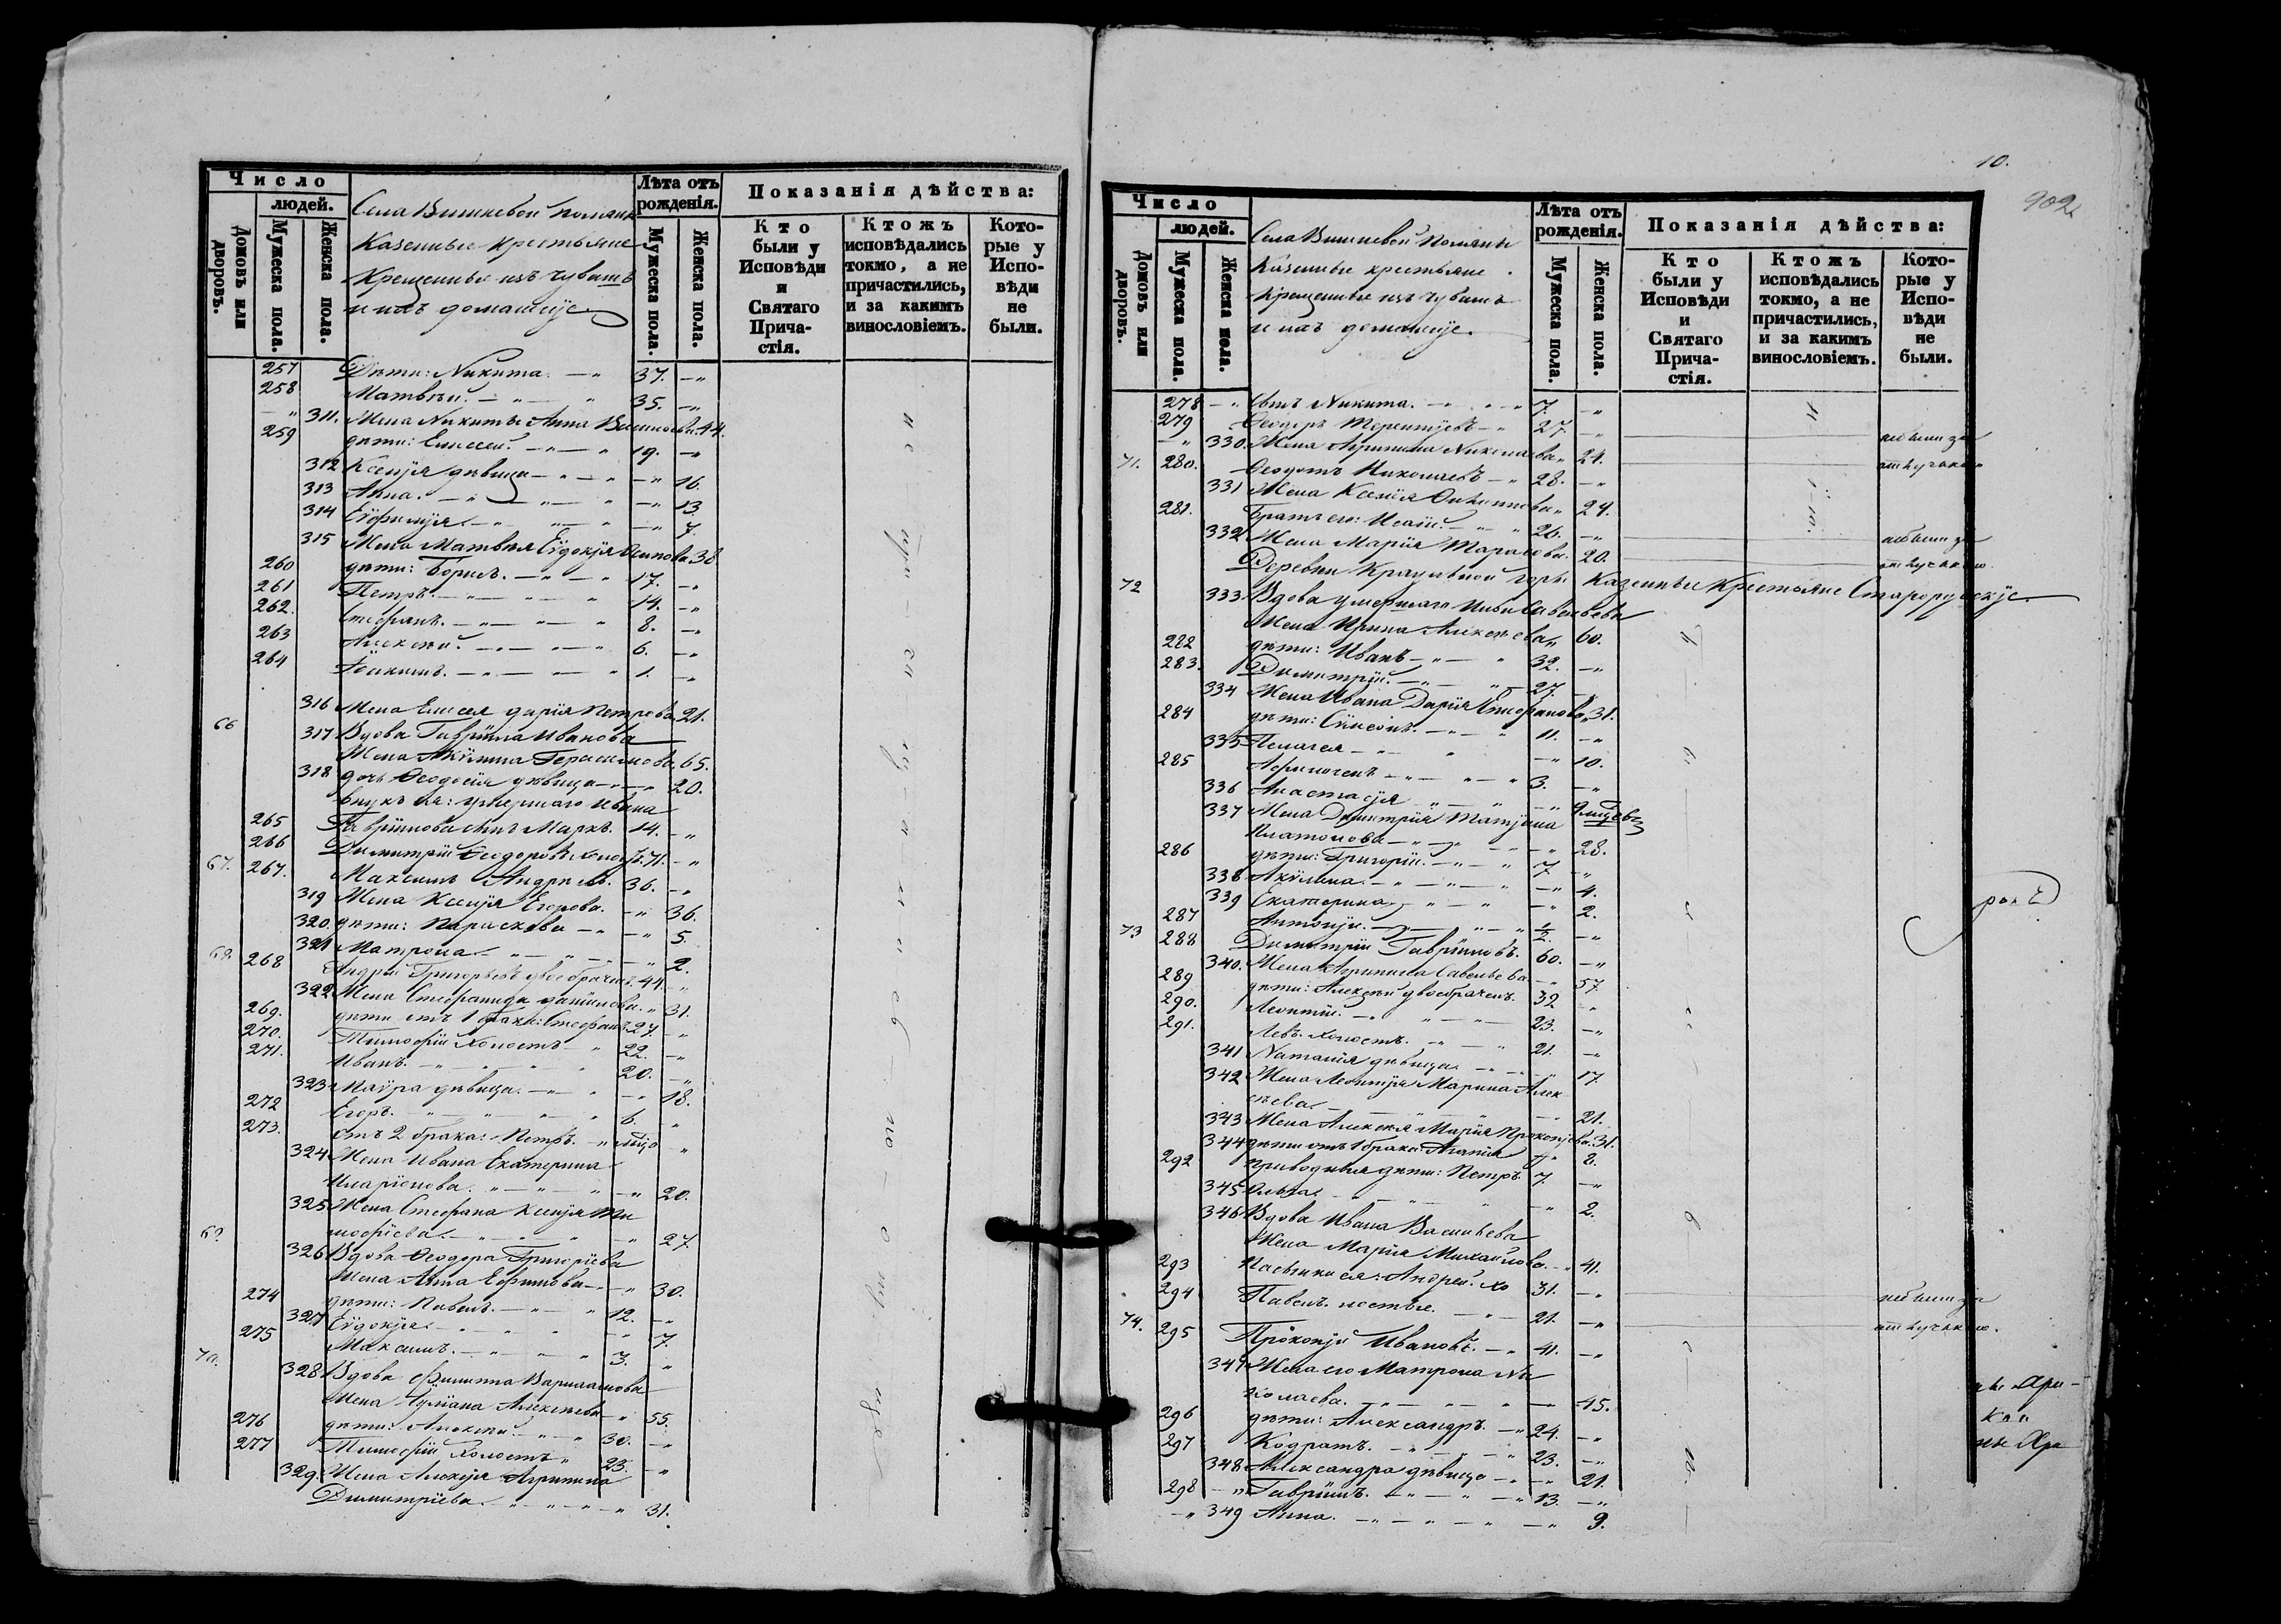 Число
людей.
Домовъ или дворовъ.
Мужеска пола.
Женска пола.
Села Вишневой поляны
Казенные крестьяне
Крещенные изъ чувашъ
и ихъ домашніе
Лѣта отъ рожденія.
Мужеска пола.
Женска пола.
Показанія дѣйства:
Кто были у Исповѣди и Святаго Причастія.
Ктожъ исповѣдались токмо, а не причастились, и за какимъ винословіемъ.
Которые у Исповѣди не были.
257 Дѣти: Никита. 37.
258 Матвѣй. 35.
311. Жена Никиты Анна 44.
259 дѣти: Елисей. 19.
312 Ксенія дѣвица 16.
313 Анна. 13
314 Евфимія 7.
315 Жена Матвѣя Евдокія Осипова 38
260 дѣти: Борисъ. 17.
261 Петръ. 14.
262. Стефанъ. 8.
263 Алексѣй. 6.
264 Іоакимъ. 1.
316 Жена Елисея Дарія Петрова 21.
66 317 Вдова Гавріила Иванова
Жена Акулина Герасимова 65.
318 дочь Ѳеодосія дѣвица 20.
внукъ ея: умершаго Ивана
265 Гавріилова сынъ Маркъ. 14.
266 Димитрій Ѳеодоровъ 71.
67. 267. Максимъ Андреевъ. 36.
319 Жена Ксенія Егорова. 36.
320. дѣти: Параскева 5.
321 Матрона 2.
68. 268 Андрей Григорьевъ двоебраченъ 44.
322 Жена Стефанида Даніилова. 31.
269. дѣти отъ 1 брака: Стефанъ 27.
270. Тимофій холостъ 22.
271. Иванъ. 20.
323 Мавра дѣвица. 18.
272 Егоръ. 6.
273. отъ 2 брака: Петръ.
324 Жена Ивана Екатерина
Иларіонова. 20.
325 Жена Стефана Ксенія Ти
мофіева. 27.
69. 326 Вдова Ѳеодора Григоріева
Жена Анна Ефимова 30.
274 дѣти: Павелъ. 12.
327 Евдокія. 7.
275 Максимъ. 3.
70. 328 Вдова Филиппа Варламова
Жена Іуліана Алексѣева 55.
276 дѣти: Алексѣй. 30.
277 Тимофій холостъ 23.
329. Жена Алексія Агрипина
Димитріева. 31.
10.
902
Число
людей.
Домовъ или дворовъ.
Мужеска пола.
Женска пола.
Села Вишневой поляны
Казенные крестьяне
Крещенные изъ чувашъ
и ихъ домашніе.
Лѣта отъ рожденія.
Мужеска пола.
Женска пола.
Показанія дѣйства:
Кто были у Исповѣди и Святаго Причастія.
Ктожъ исповѣдались токмо, а не причастились, и за какимъ винословіемъ.
Которые у Исповѣди не были.
278 сынъ Никита. 7.
279 Ѳеодоръ Терентіевъ 27.
330. Жена Агрипина Николаева 24. небыли за
71. 280. Ѳеодотъ Николаевъ 28. отлучкою
331 Жена Ксенія Филиппова 24.
281. Братъ его: Исаій. 26.
332 Жена Марія Тарасова. 20. небыли за
отлучкою.
Деревни Караульной горы Казенные Крестьяне Старорусскіе.
72 333 Вдова умершаго Ильи Савельева
Жена Ирина Алексѣева 60.
282 дѣти: Иванъ 32.
283. Димитрій. 27.
334 Жена Ивана Дарія Стефанова 31.
284 дѣти: Сѵмеонъ. 11.
335 Пелагея 10.
285 Афиногенъ 3.
336 Анастасія
337 Жена Димитрія Татіана
Платонова 28.
286 дѣти: Григорій. 7.
338 Акулина. 4.
339 Екатерина 2.
287 Антоній. 1/2.
73 288 Димитрій Гавріиловъ. 60.
340. Жена Агрипина Савельева 57.
289 дѣти: Алексѣй двоебраченъ. 32
290. Леонтій. 23.
291. Левъ холостъ. 21.
341 Наталія дѣвица 17.
342 Жена Леонтія Марина Алек
сѣева. 21.
343 Жена Алексѣя Марія Прокопіева. 31.
344 дѣти отъ 1 брака Агапія 8.
292 приводныя дѣти: Петръ 7.
345 Ольга. 2.
346 Вдова Ивана Васильева
Жена Марія Михайлова. 41.
293 Пасынки ея: Андрей. хо 31. небыли за
294 Павелъ. лостые. 21. отлучкою.
74. 295 Прокопій Ивановъ. 41.
347 Жена его Матрона Ни
колаева. 45.
296 дѣти: Александръ. 24.
297 Кодратъ. 23.
348 Александра дѣвица 21.
298 Гавріилъ. 13.
349 Анна. 9.